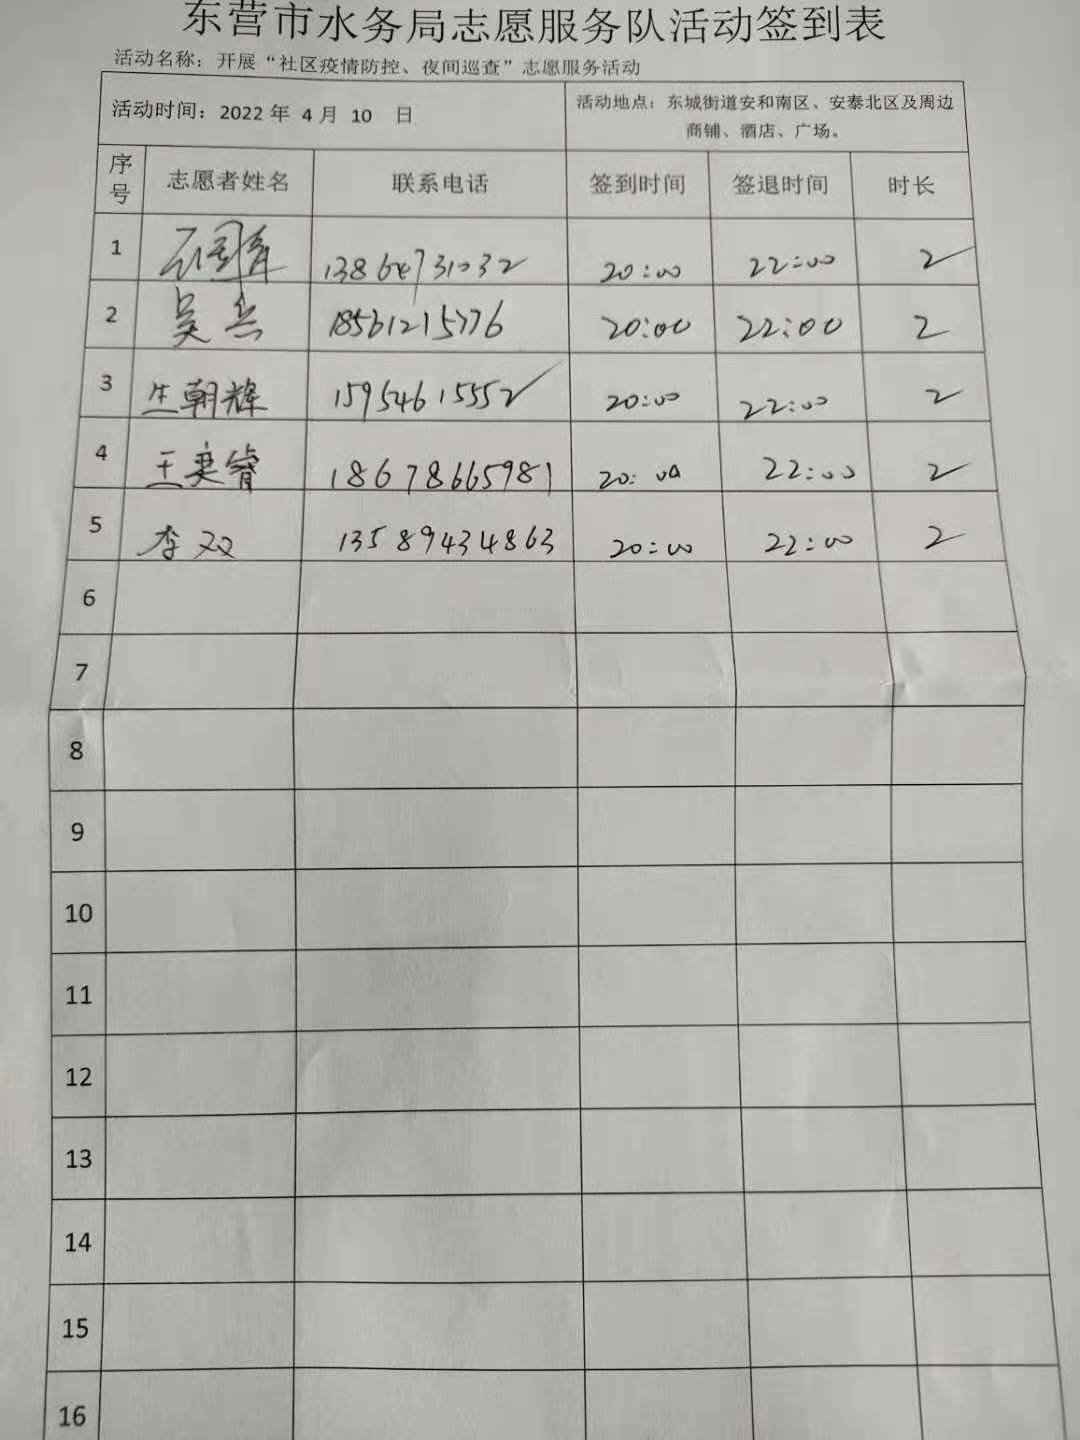 东营市水务局志愿服务队活动签到表
活动名称：开展“社区疫情防控、夜间巡查”志愿服务活动
活动时间：2022 年 4 月 10 日
活动地点：东城街道安和南区、安泰北区及周边商铺、酒店、广场。
序号 志愿者姓名 联系电话 签到时间 签退时间 时长
1 石国青 13864731032 20:00 22:00 2
2 吴兵 18561215776 20:00 22:00 2
3 生朝辉 15954615552 20:00 22:00 2
4 王秉睿 18678665981 20:00 22:00 2
5 李双 13589434863 20:00 22:00 2
6
7
8
9
10
11
12
13
14
15
16